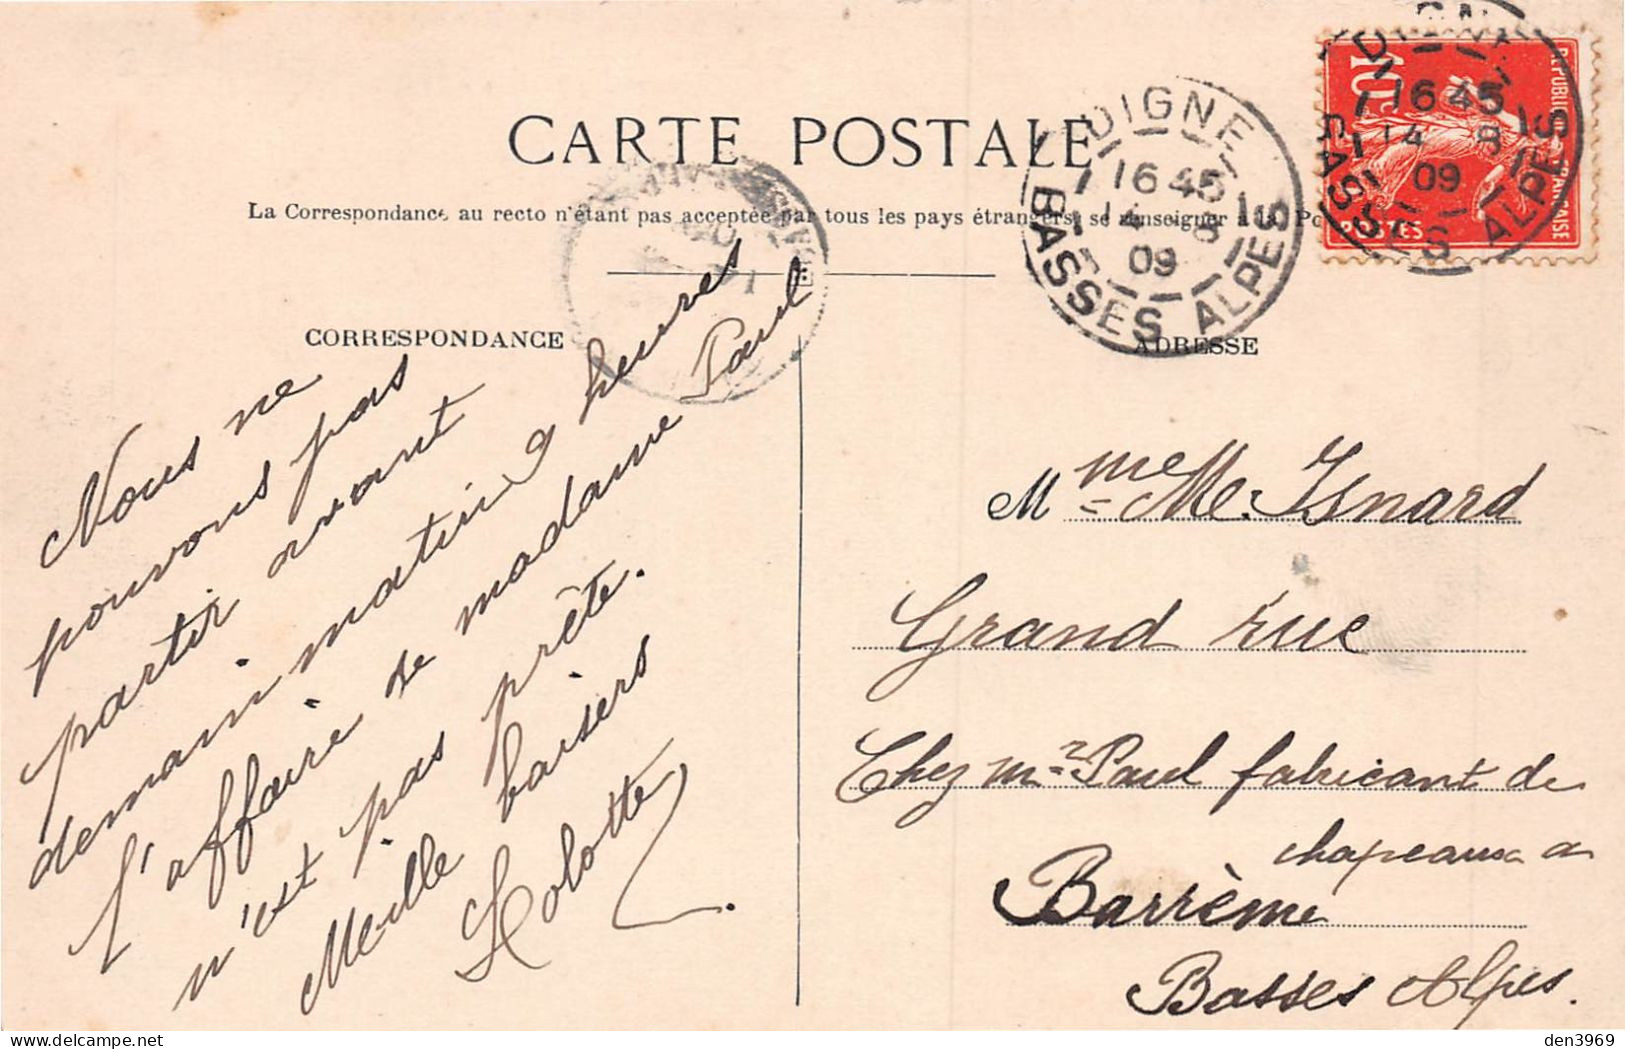 CARTE POSTALE
La Correspondance au recto n'étant pas acceptée par tous les pays étrangers, se renseigner à la Po
CORRESPONDANCE
ADRESSE
DIGNE
16 45
14 8
09
BASSES ALPES
DIGNE
16 45
14 8
09
BASSES ALPES
10c
REPUBLIQUE FRANÇAISE
POSTES
Nous ne
pouvons pas
partir avant
demain matin 9 heures
l'affaire de madame Paul
n'est pas prête.
Mille baisers
Lolotte
Mme Me. Isnard
Grand rue
Chez mr Paul fabricant de
chapeaux a
Barrème
Basses Alpes.
den3969